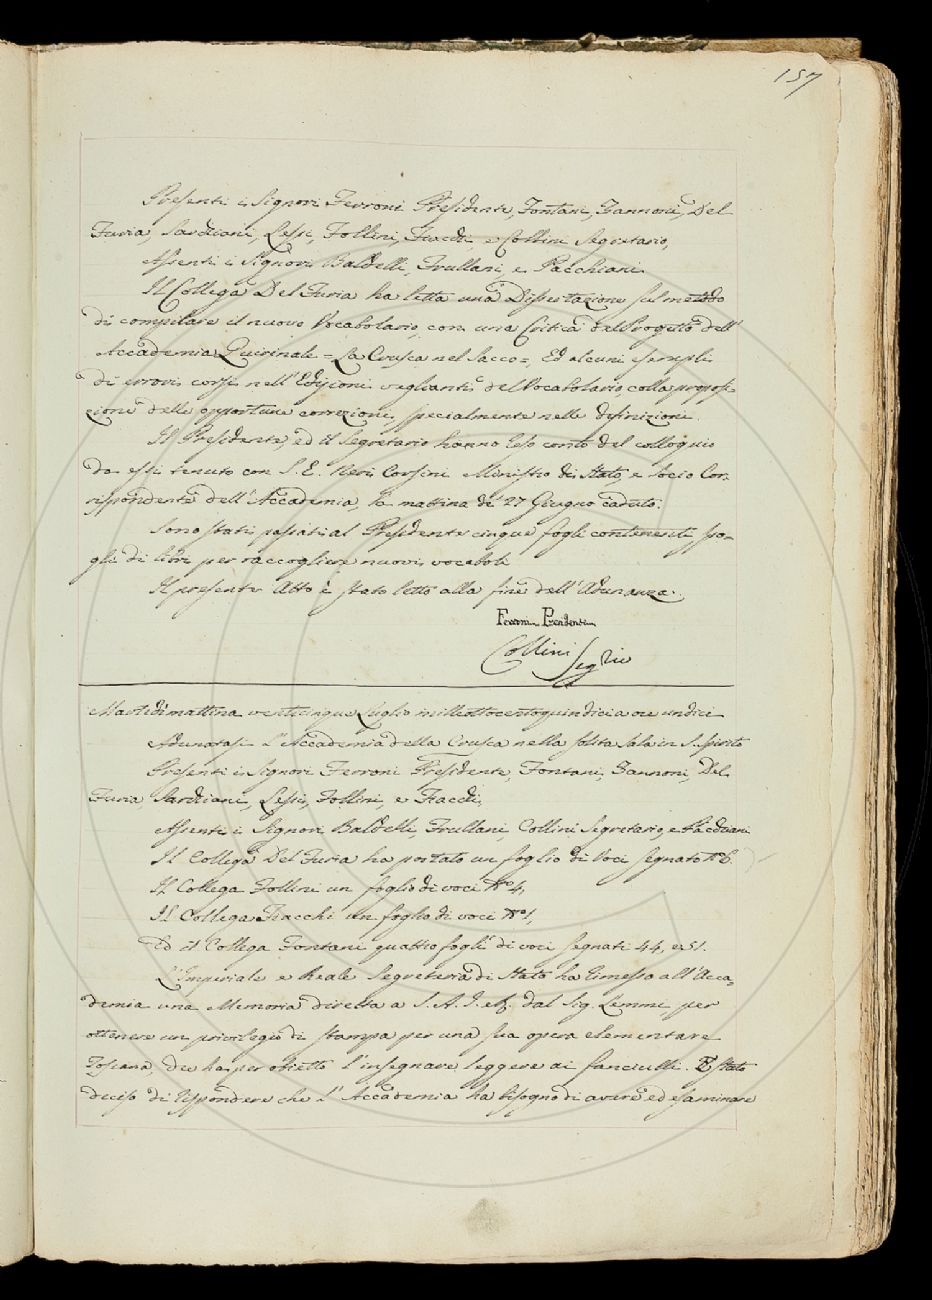 157
Presenti i Signori Ferroni Presidente, Fontani, Zannoni, Del
Furia, Sarchiani, Lessi, Follini, Fiacchi, e Collini Segretario,
Assenti i Signori Baldelli, Frullani, e Pacchiani.
Il Collega Del Furia ha letta una Dissertazione sul metodo
di compilare il nuovo Vocabolario, con una Critica dell'Progetto dell'
Accademia Quirinale = La Crusca nel Sacco =, Ed alcuni esempli
di errori corsi nell'Edizioni veglianti del Vocabolario, colla proposi=
zione delle opportune correzioni, specialmente nelle definizioni.
Il Presidente, ed il Segretario hanno reso conto del colloquio
da essi tenuto con S. E. Neri Corsini Ministro di Stato, e Socio Cor=
rispondente dell'Accademia, la mattina de' 27 Giugno caduto.
Sono stati passati al Presidente cinque fogli contenenti spo=
gli di libri per raccogliere nuovi vocaboli
Il presente Atto è stato letto alla fine dell'Adunanza.
Ferroni Presidente
Collini Segrio
Martedì mattina venticinque Luglio milleottocentoquindici a ore undici
Adunatasi l'Accademia della Crusca nella solita sala in S. Spirito
Presenti i Signori Ferroni Presidente, Fontani, Zannoni, Del
Furia, Sarchiani, Lessi, Follini, e Fiacchi,
Assenti i Signori Baldelli, Frullani, Collini Segretario, e Pacchiani
Il Collega Del Furia ha portato un foglio di Voci segnato No 6.
Il Collega Follini un foglio di voci No 4,
Il Collega Fiacchi un foglio di voci No 1,
Ed il Collega Fontani quattro fogli di voci segnati 44, e 51.
L'Imperiale e Reale Segreteria di Stato ha rimesso all'Acca=
demia una Memoria diretta a S. A. I. e R. dal Sig. Lemmi per
ottenere un privilegio di stampa per una sua opera elementare
Toscana, che ha per oggetto l'insegnare leggere ai fanciulli. È stato
deciso di rispondere che l'Accademia ha bisogno di avere ed esaminare